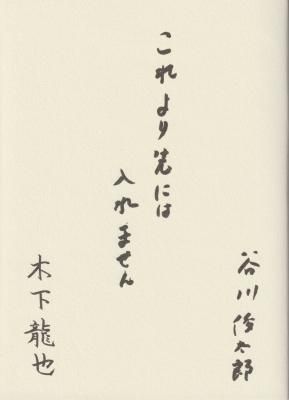 これより先には
入れません
谷川俊太郎
木下龍也